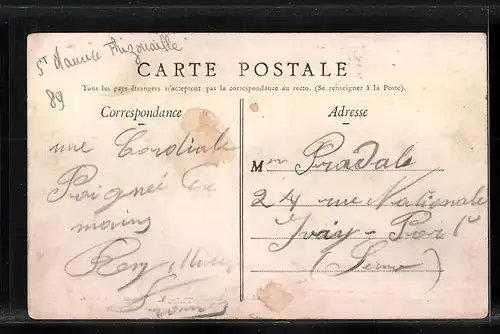 St Maurice Thizouaille
89
CARTE POSTALE
Tous les pays étrangers n'acceptent pas la correspondance au recto. (Se renseigner à la Poste).
Correspondance
Adresse
une Cordiale
Poignée de
mains
Mr Pradale
24 rue Nationale
Ivry-Port
(Seine)